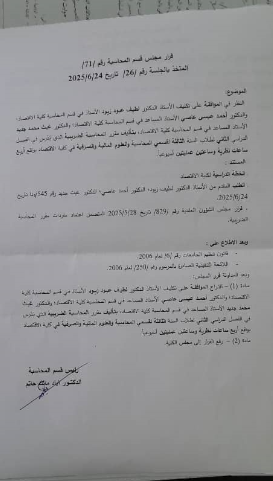 قرار مجلس قسم المحاسبة رقم /21/
المتخذ بالجلسة رقم /26/ تاريخ 2025/6/24
الموضوع
النظر في الموافقة على تكليف الأستاذ الدكتور لطيف عبود زيود الأستاذ في قسم المحاسبة كلية الاقتصاد،
والدكتور أحمد عيسى عاصي الأستاذ المساعد في قسم المحاسبة كلية الاقتصاد، والدكتور غيث محمد جديد
الأستاذ المساعد في قسم المحاسبة كلية الاقتصاد، بتأليف مقرر المحاسبة الضريبية الذي يدرس في الفصل
الدراسي الثاني لطلاب السنة الثالثة لقسمي المحاسبة والعلوم المالية والمصرفية في كلية الاقتصاد بواقع أربع
ساعات نظرية وساعتين عمليتين أسبوعياً.
المستند:
الخطة الدراسية لكلية الاقتصاد
الطلب المقدم من الأستاذ الدكتور لطيف زيود، الدكتور أحمد عاصي، الدكتور غيث جديد رقم تاريخ
2025/6/24.
- قرار مجلس الشؤون العلمية رقم تاريخ المتضمن اعتماد مفردات مقرر المحاسبة
الضريبية.
وبعد الاطلاع على:
- قانون تنظيم الجامعات رقم /6/ لعام 2006.
- اللائحة التنفيذية الصادرة بالمرسوم رقم /250/ لعام 2006.
وبعد المداولة قرر المجلس:
مادة (1) – اقتراح الموافقة على تكليف الأستاذ الدكتور لطيف عبود زيود الأستاذ في قسم المحاسبة كلية
الاقتصاد، والدكتور أحمد عيسى عاصي الأستاذ المساعد في قسم المحاسبة كلية الاقتصاد، والدكتور غيث
محمد جديد الأستاذ المساعد في قسم المحاسبة كلية الاقتصاد، بتأليف مقرر المحاسبة الضريبية الذي يدرس
في الفصل الدراسي الثاني لطلاب السنة الثالثة لقسمي المحاسبة والعلوم المالية والمصرفية في كلية الاقتصاد
بواقع أربع ساعات نظرية وساعتين عمليتين أسبوعياً.
مادة (2) – رفع القرار إلى مجلس الكلية.
رئيس قسم المحاسبة
الدكتور حاتم